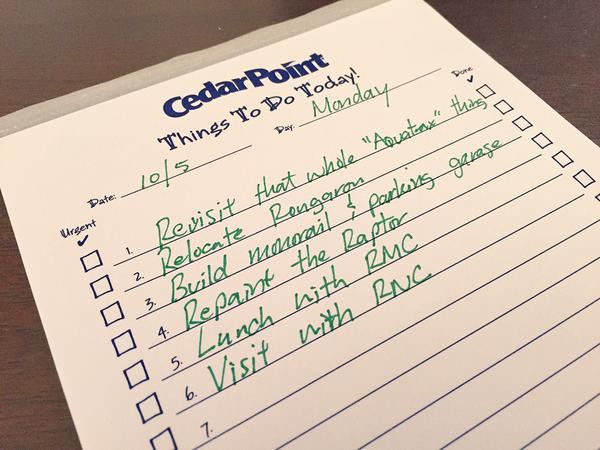 CedarPoint
Things To Do Today!
Done
Date: 10/5 Day: Monday
Urgent
1. Revisit that whole "Aquatraxx" thing
2. Relocate Rougarou
3. Build monorail & parking garage
4. Repaint the Raptor
5. Lunch with RMC
6. Visit with RNC
7.